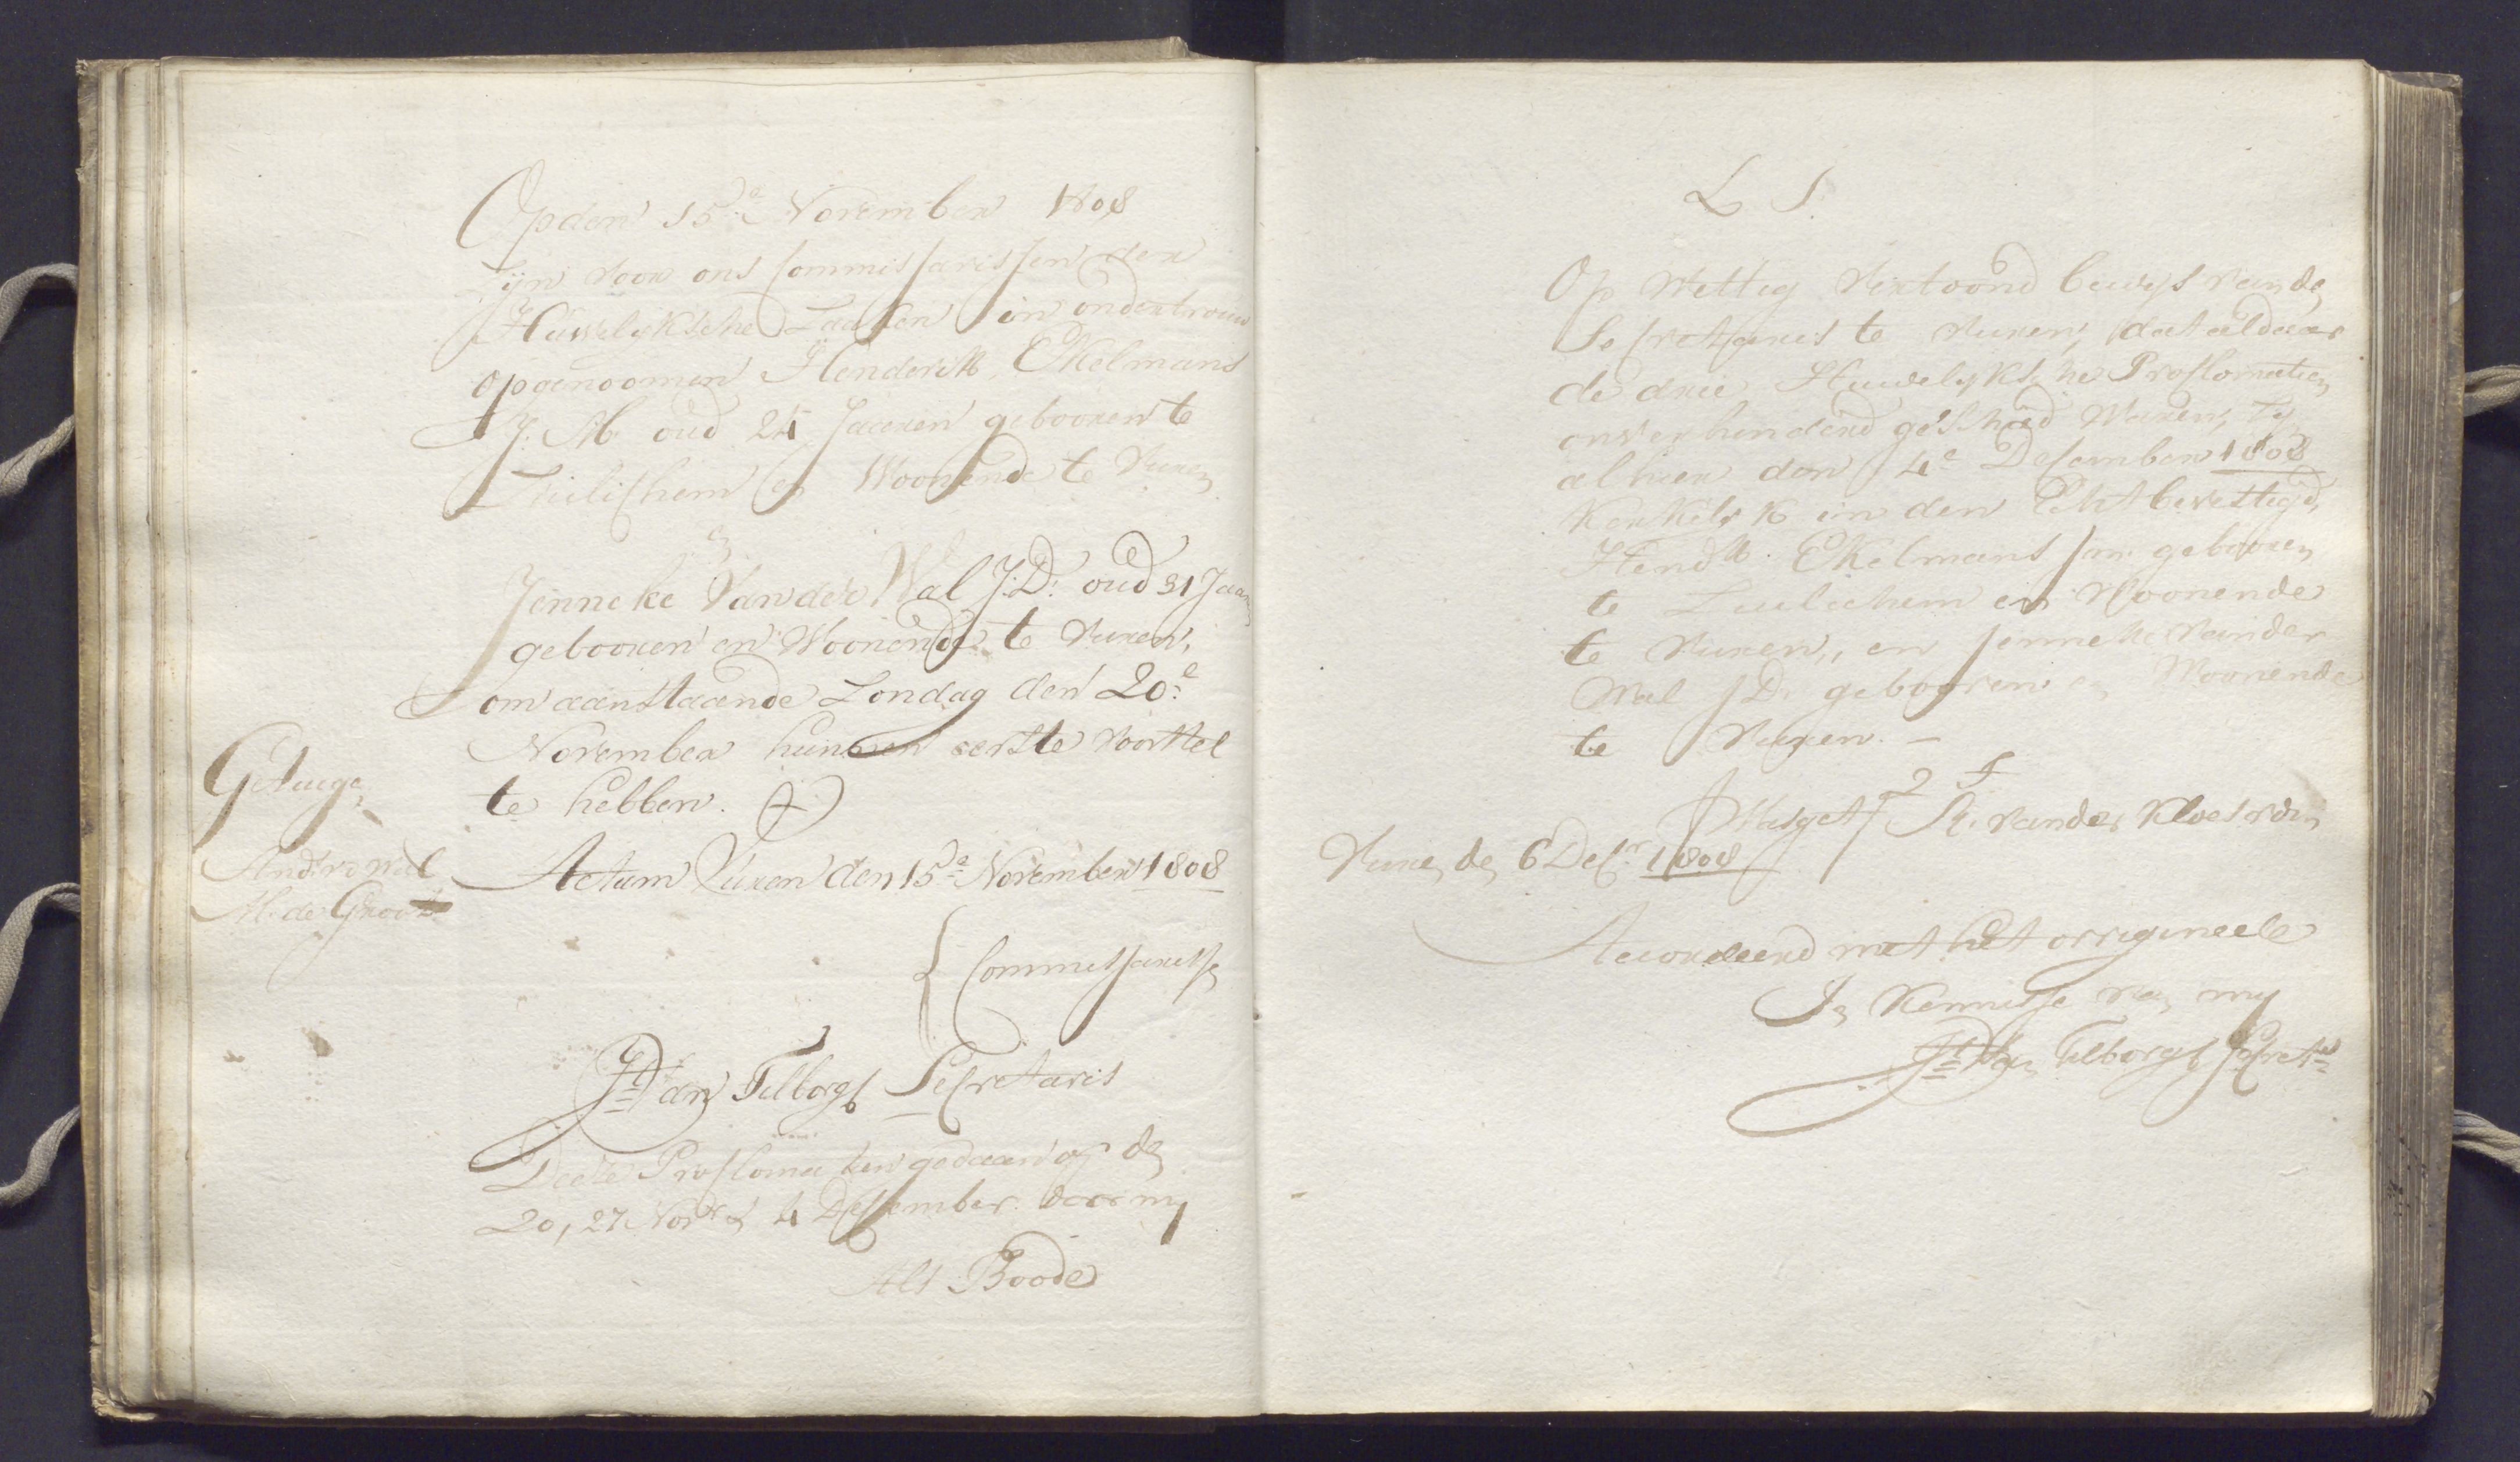 Op den 15.e November 1808
Zijn voor ons Commissarissen der
Huwelyksche Zaaken in ondertrouw
opgenoomen Henderik Ekelmans
J. M. oud 24 Jaaren gebooren te
Zuilichem en Woonende te Vuren
en
Jenneke van der Wal J: D: oud 31 Jaaren
gebooren en Woonende te Vuren,
om aanstaande Zondag den 20.e
November hunnen eerste voorstel
te hebben.
Getuige
M. de Groot
Actum Vuren den 15.e November 1808
Commissarisse
Jt. van Tilborgh Secretaris
Deese Proclomatien gedaan op den
20, 27 Novr & 4 Dessember door my
Als Boode
L S.
Op Wettig Vertoond bewys van de
Secretaris te Vuren, dat aldaar
de drie Huwelyksche Proclomatien
onverhinderd geschied Waren, Zy
alhier den 4e December 1808
Kerkelyk in den Echt bevestigd,
Hendk. Ekelmans J.m. gebooren
te Zuilichem en Woonende
te Vuren,, en Jenneke van der
Wal J D. gebooren en Woonende
te Vuren. —
Was get. R. van der
Vuren den 6 Decr. 1808
Accordeerd met het origineele
In Kennisse van my
Jt. van Tilborgh Secrets